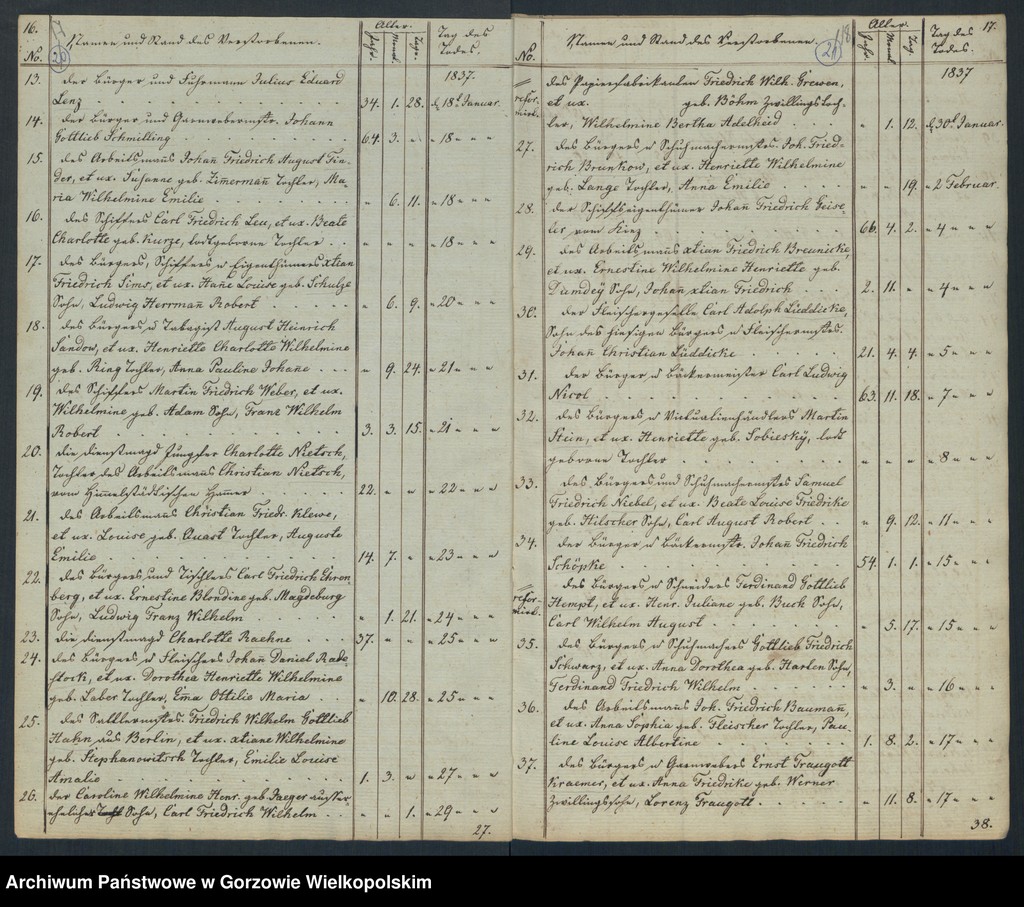 16.
No.
Namen und Stand des Verstorbenen.
Alter.
Jahr. Monat. Tage.
Tag des
Todes.
1837.
13. der Bürger und Fuhrmann Julius Eduard
Lenz 34. 1. 28. d. 18t. Januar.
14. der Bürger und Garnwebermstr. Johann
Gottlieb Schmilling 64. 3. " " 18 " "
15. des Arbeitsmañs Johañ Friedrich August
et ux. Susanne geb. Zimermañ Tochter, Ma-
ria Wilhelmine Emilie " 6. 11. " 18 " "
16. des Schiffers Carl Friedrich Leu, et ux. Beate
Charlotte geb. Kurze, todtgeborne Tochter " " " " 18 " "
17. des Bürgers, Schiffers u Eigenthümers xtian
Friedrich Sims, et ux. Hañe Louise geb. Schulze
Sohn, Ludwig Herrmañ Robert " 6. 9. " 20 " "
18. des Bürgers u Tabagist August Heinrich
Sandow, et ux. Henriette Charlotte Wilhelmine
geb. Ring Tochter, Anna Pauline Johañe " 9. 24. " 21 " "
19. des Schiffers Martin Friedrich Weber, et ux.
Wilhelmine geb. Adam Sohn, Franz Wilhelm
Robert 3. 3. 15. " 21 " "
20. die Dienstmagd Jungfer Charlotte Nietsch,
Tochter des Arbeitsmañs Christian Nietsch,
vom Himmelstädtischen Hammer 22. " " " 22 " "
21. des Arbeitsmañs Christian Friedr. Klewe,
et ux. Louise geb. Quast Tochter, Auguste
Emilie 14. 7. " " 23 " "
22. des Bürgers und Tischlers Carl Friedrich Ehren
berg, et ux. Ernestine Blondine geb. Magdeburg
Sohn, Ludwig Franz Wilhelm " 1. 21. " 24 " "
23. die Dienstmagd Charlotte Raehne 37. " " " 25 " "
24. des Bürgers u Fleischers Johañ Daniel Rade-
stock, et ux. Dorothea Henriette Wilhelmine
geb. Laber Tochter, Ema Ottilie Maria " 10. 28. " 25 " "
25. des Sattlermstrs. Friedrich Wilhelm Gottlieb
Hahn aus Berlin, et ux. xtiane Wilhelmine
geb. Stephanowitsch Tochter, Emilie Louise
Amalie 1. 3. " " 27 " "
26. der Caroline Wilhelmine Henr. geb. Jaeger außer
eheliches Sohn, Carl Friedrich Wilhelm " " 1. " 29 " "
27.
17.
No.
Namen und Stand des Verstorbenen.
Alter.
Jahr. Monat. Tag.
Tag des
Todes.
1837
refor-
mirt. des Papierfabrikanten Friedrich Wilh. Grewen,
et ux. geb. Böhm Zwillingstoch-
ter, Wilhelmine Bertha Adelheid " 1. 12. d. 30t. Januar.
27. des Bürgers u Schuhmachermstrs. Joh. Fried-
rich Brunkow, et ux. Henriette Wilhelmine
geb. Lange Tochter, Anna Emilie " " 19. " 2 Februar.
28. der Schiffseigenthümer Johañ Friedrich Geise-
ler, vom Kiez 66. 4. 2. " 4 " "
29. des Arbeitsmañs xtian Friedrich Breunicke,
et ux. Ernestine Wilhelmine Henriette geb.
Dumdey Sohn, Johañ xtian Friedrich 2. 11. " " 4 " "
30. der Fleischergeselle Carl Adolph Lüddicke,
Sohn des hiesigen Bürgers u Fleischermstrs.
Johañ Christian Lüddicke 21. 4. 4. " 5 " "
31. der Bürger u Bäckermeister Carl Ludwig
Nicol 63. 11. 18. " 7 " "
32. des Bürgers u Victualienhändlers Martin
Stein, et ux. Henriette geb. Sobiesky, todt
geborne Tochter " " " " 8 " "
33. des Bürgers und Schuhmachermstrs Samuel
Friedrich Niebel, et ux. Beate Louise Friedrike
geb. Hilscher Sohn, Carl August Robert " 9. 12. " 11 " "
34. der Bürger u Bäckermstr. Johañ Friedrich
Schöpke 54. 1. 1. " 15 " "
refor-
mirt. des Bürgers u Schneiders Ferdinand Gottlieb
Hempt, et ux. Henr. Juliane geb. Buch Sohn,
Carl Wilhelm August " 5. 17. " 15 " "
35. des Bürgers u Schuhmachers Gottlieb Friedrich
Schwarz, et ux. Anna Dorothea geb. Harten Sohn,
Ferdinand Friedrich Wilhelm " 3. " " 16 " "
36. des Arbeitsmañs Joh. Friedrich Baumañ,
et ux. Anna Sophia geb. Fleischer Tochter, Pau-
line Louise Albertine 1. 8. 2. " 17 " "
37. des Bürgers u Garnwebers Ernst Traugott
Kraemer, et ux. Anna Friedrike geb. Werner
Zwillingssohn, Lorenz Traugott " 11. 8. " 17 " "
38.
Archiwum Państwowe w Gorzowie Wielkopolskim